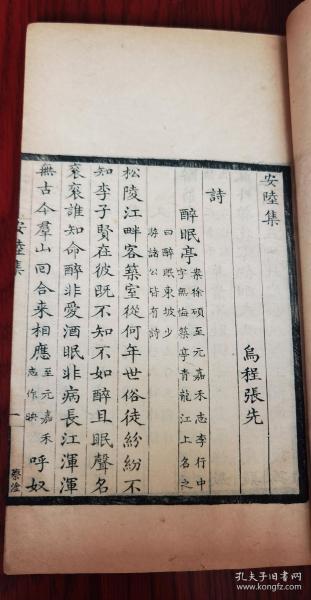 安陸集
烏程張先
詩
醉眠亭
案徐碩至元嘉禾志李行中
字無悔築亭青龍江上名之
曰醉眠東坡少
游諸公皆有詩
松陵江畔客築室從何年世俗徒紛紛不
知李子賢在彼既不知不如醉且眠聲名
袞袞誰知命醉非愛酒眠非病長江渾渾
無古今羣山回合來相應至元嘉禾志作映呼奴
安陸集
一
孔夫子旧书网